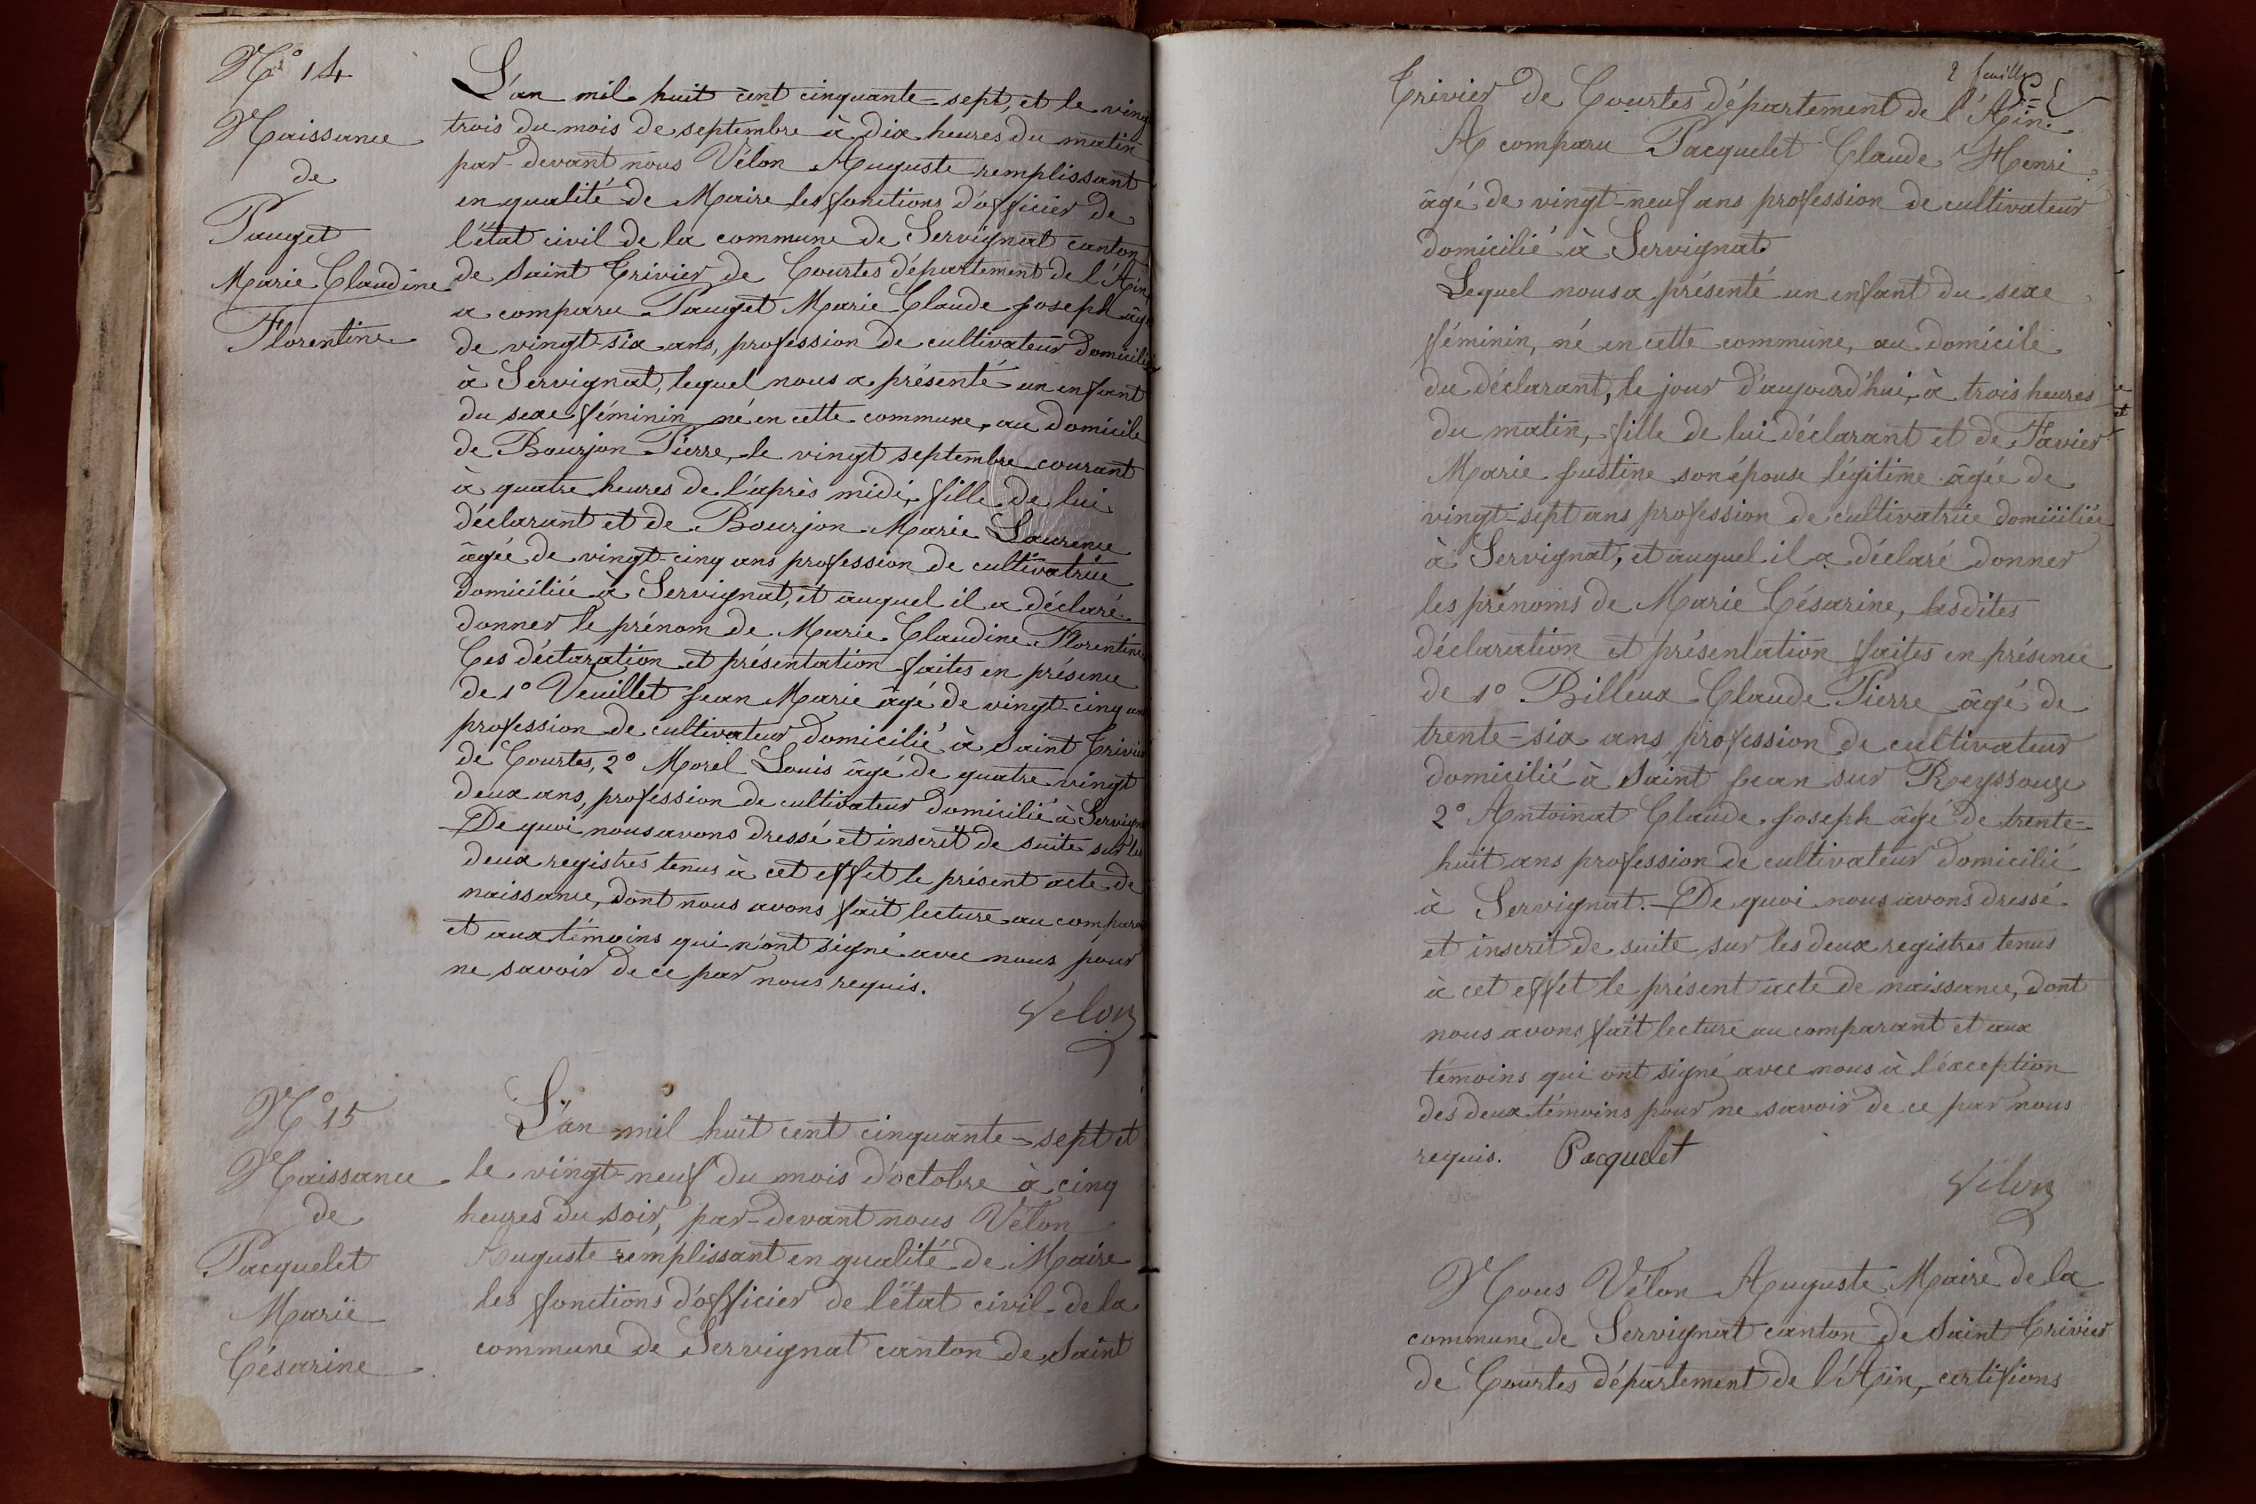 N° 14
Naissance
de
Pauget
Marie Claudine
Florentine
L'an mil huit cent cinquante-sept, et le vingt
trois du mois de septembre à dix heures du matin
par-devant nous Vélon Auguste remplissant
en qualité de Maire les fonctions d'officier de
l'état civil de la commune de Servignat canton
de Saint Trivier de Courtes département de l'Ain,
a comparu Pauget Marie Claude Joseph âgé
de vingt-six ans, profession de cultivateur domicilié
à Servignat, lequel nous a présenté un enfant
du sexe féminin né en cette commune, au domicile
de Bourjon Pierre, le vingt septembre courant
à quatre heures de l'après midi, fille de lui
déclarant et de Bourjon Marie Laurence
âgée de vingt-cinq ans profession de cultivatrice
domiciliée à Servignat, et auquel il a déclaré
donner le prénom de Marie Claudine Florentine
Ces déclaration et présentation faites en présence
de 1° Veuillet Jean Marie âgé de vingt-cinq ans
profession de cultivateur domicilié à Saint Trivier
de Courtes, 2° Morel Louis âgé de quatre vingt
deux ans, profession de cultivateur domicilié à Servign
De quoi nous avons dressé et inscrit de suite sur les
deux registres tenus à cet effet le présent acte de
naissance, dont nous avons fait lecture au compara
et aux témoins qui n'ont signé avec nous pour
ne savoir de ce par nous requis.
Velon
N° 15
Naissance
de
Pacquelet
Marie
Césarine
L'an mil huit cent cinquante-sept et
le vingt-neuf du mois d'octobre à cinq
heures du soir, par-devant nous Vélon
Auguste remplissant en qualité de Maire
les fonctions d'officier de l'état civil de la
commune de Servignat canton de Saint
2 feuille
Trivier de Courtes département de l'Ain.
A comparu Pacquelet Claude Henri
âgé de vingt-neuf ans profession de cultivateur
domicilié à Servignat
Lequel nous a présenté un enfant du sexe
féminin, né en cette commune, au domicile
du déclarant, le jour d'aujourd'hui, à trois heures
du matin, fille de lui déclarant et de Favier
Marie Justine son épouse légitime âgée de
vingt-sept ans profession de cultivatrice domiciliée
à Servignat, et auquel il a déclaré donner
les prénoms de Marie Césarine, lesdites
déclaration et présentation faites en présence
de 1° Billeux Claude Pierre âgé de
trente-six ans profession de cultivateur
domicilié à Saint Jean sur Reyssouze
2° Antoinat Claude Joseph âgé de trente-
huit ans profession de cultivateur domicilié
à Servignat. De quoi nous avons dressé
et inscrit de suite sur les deux registres tenus
à cet effet le présent acte de naissance, dont
nous avons fait lecture au comparant et aux
témoins qui ont signé avec nous à l'exception
des deux témoins pour ne savoir de ce par nous
requis. Pacquelet
Velon
Nous Vélon Auguste Maire de la
commune de Servignat canton de Saint Trivier
de Courtes département de l'Ain, certifions